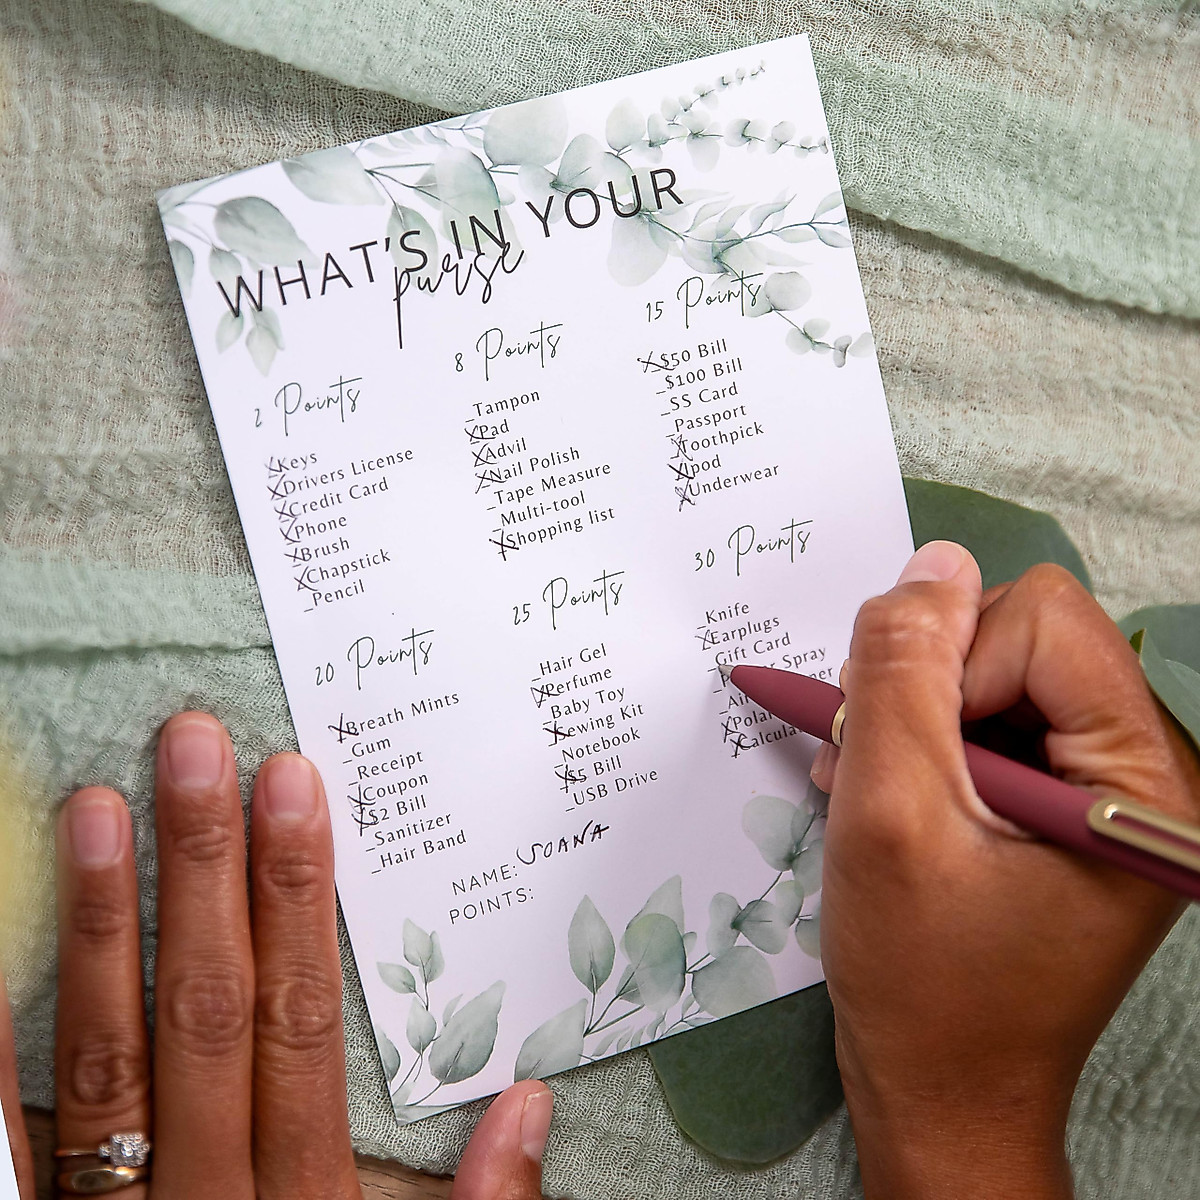 WHAT'S IN YOUR
purse
2 Points
Keys
Drivers License
Credit Card
Phone
Brush
Chapstick
Pencil
8 Points
Tampon
Pad
Advil
Nail Polish
Tape Measure
Multi-tool
Shopping list
15 Points
$50 Bill
$100 Bill
SS Card
Passport
Toothpick
Ipod
Underwear
20 Points
Breath Mints
Gum
Receipt
Coupon
$2 Bill
Sanitizer
Hair Band
25 Points
Hair Gel
Perfume
Baby Toy
Sewing Kit
Notebook
$5 Bill
USB Drive
30 Points
Knife
Earplugs
Gift Card
Spray
NAME: JOANA
POINTS: